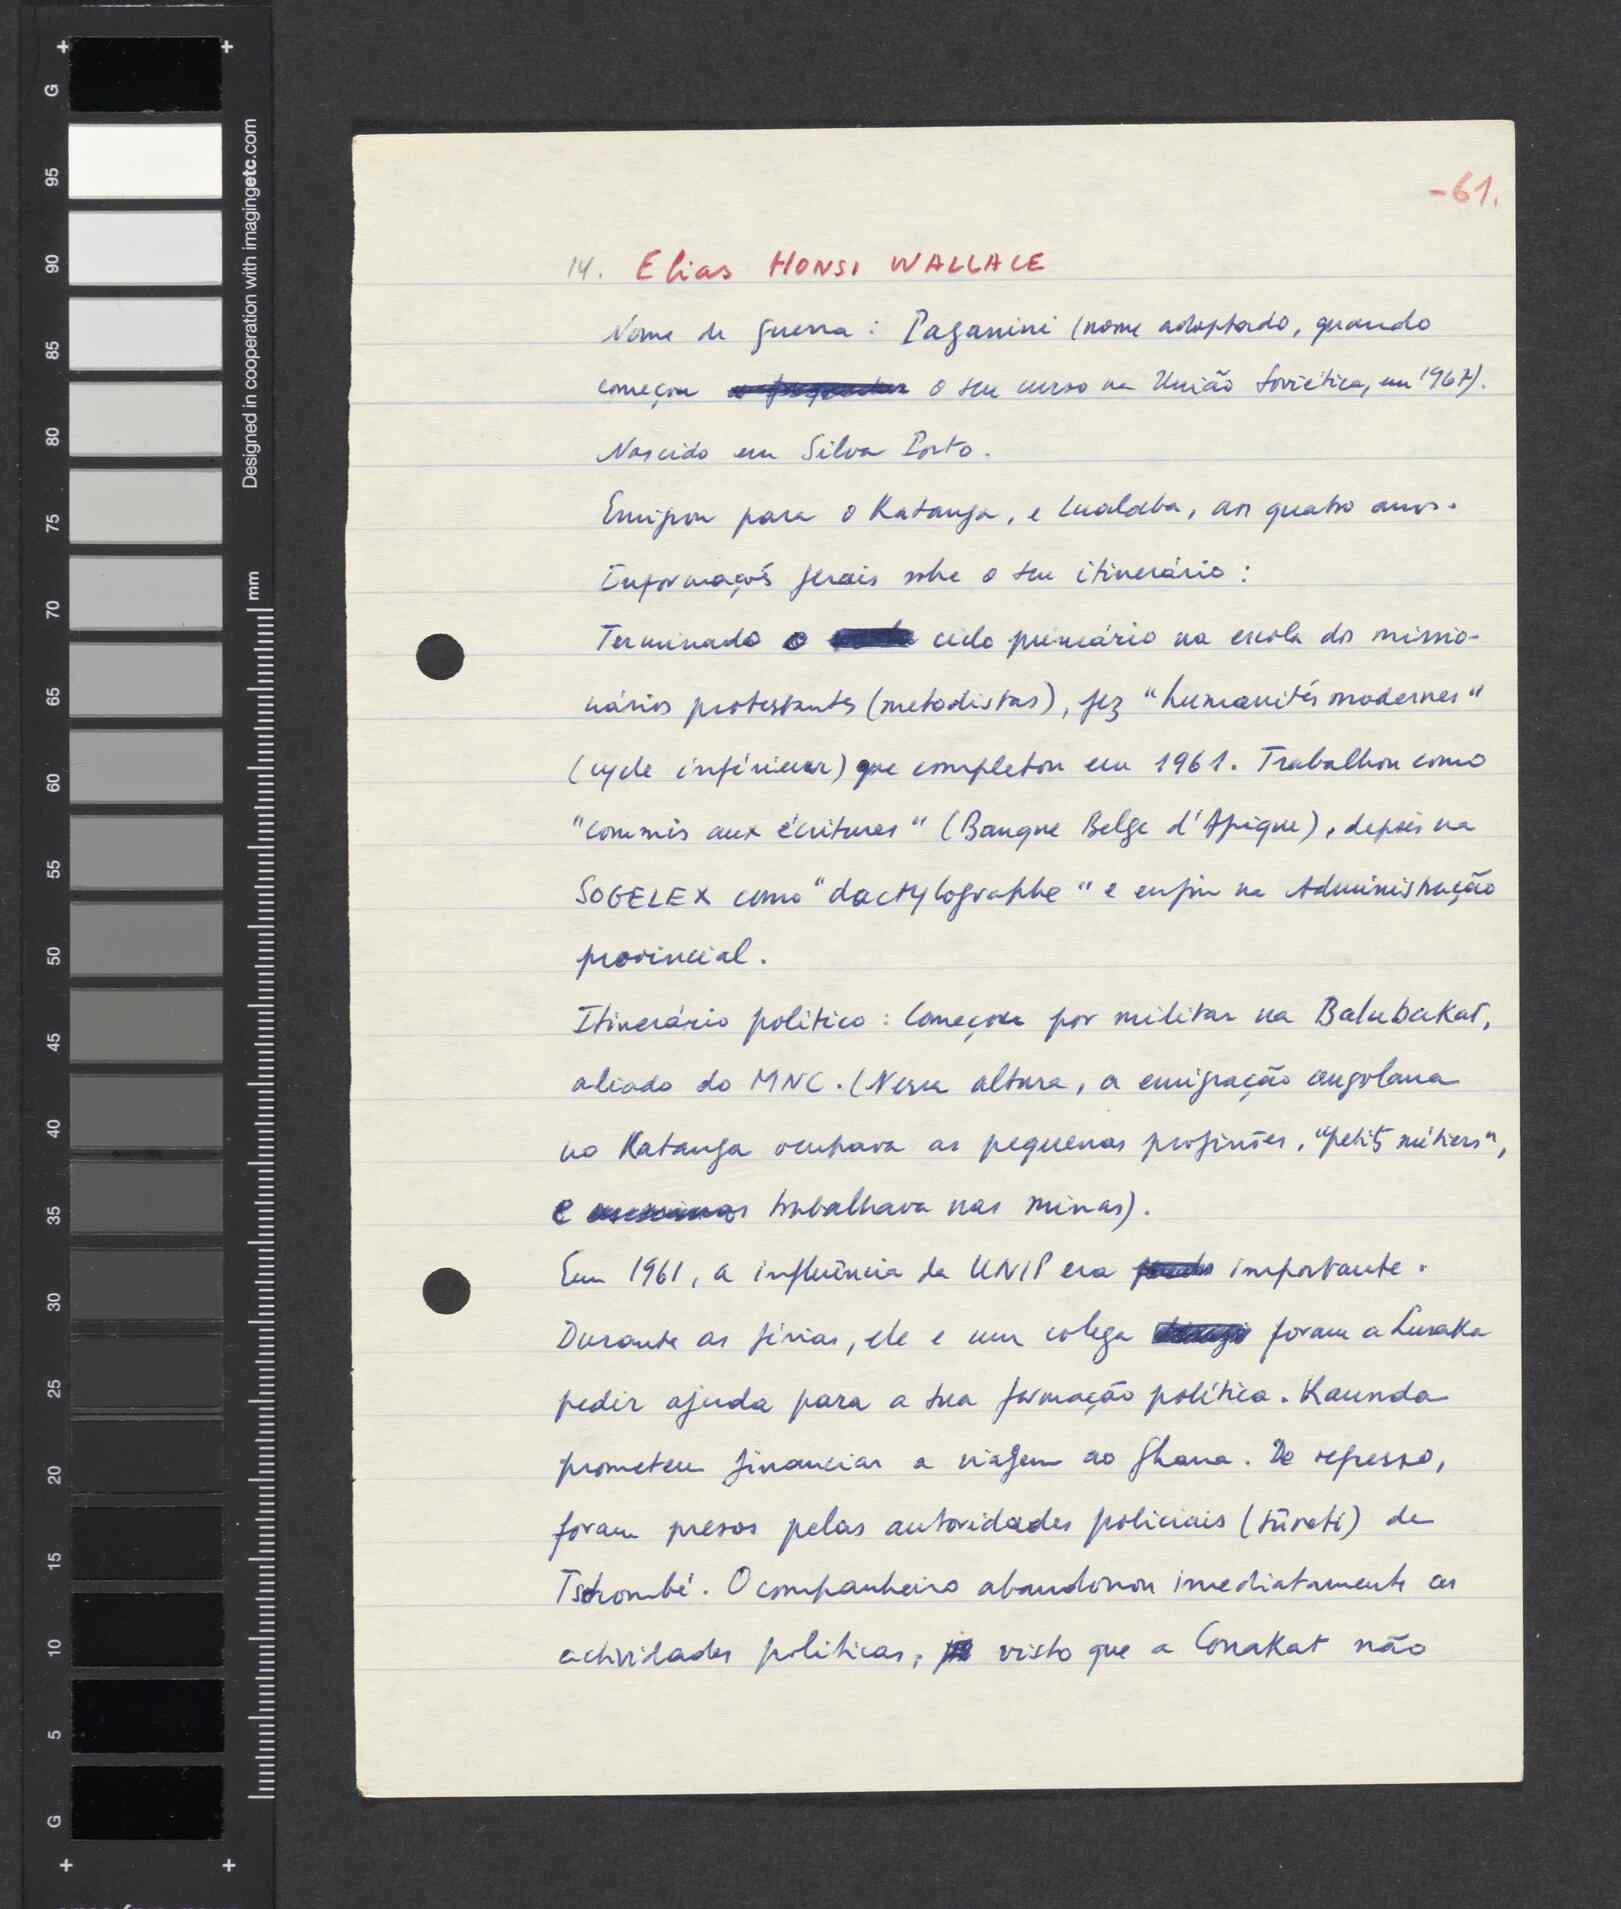 -61.
14. Elias HONSI WALLACE
Nome de guerra : Paganini (nome adoptado, quando
começou o seu curso na União Soviética, em 1967).
Nascido em Silva Porto.
Emigrou para o Katanga, e Lualaba, aos quatro anos.
Informações gerais sobre o seu itinerário :
Terminado o ciclo primário na escola dos missio-
nários protestantes (metodistas), fez "humanités modernes"
(cycle inférieur) que completou em 1961. Trabalhou como
"commis aux écritures" (Banque Belge d'Afrique), depois na
SOGELEX como "dactylographe" e enfim na Administração
provincial.
Itinerário político : Começou por militar na Balubakat,
aliado do MNC. (Nessa altura, a emigração angolana
no Katanga ocupava as pequenas profissões, "petits métiers",
e trabalhava nas minas).
Em 1961, a influência da UNIP era importante.
Durante as férias, ele e um colega foram a Lusaka
pedir ajuda para a sua formação política. Kaunda
prometeu financiar a viagem ao Ghana. De regresso,
foram presos pelas autoridades policiais (sûreté) de
Tschombé. O companheiro abandonou imediatamente as
actividades políticas, visto que a Conakat não
G
95
90
85
80
75
70
65
60
55
50
45
40
35
30
25
20
15
10
5
G
Designed in cooperation with imagingetc.com
mm